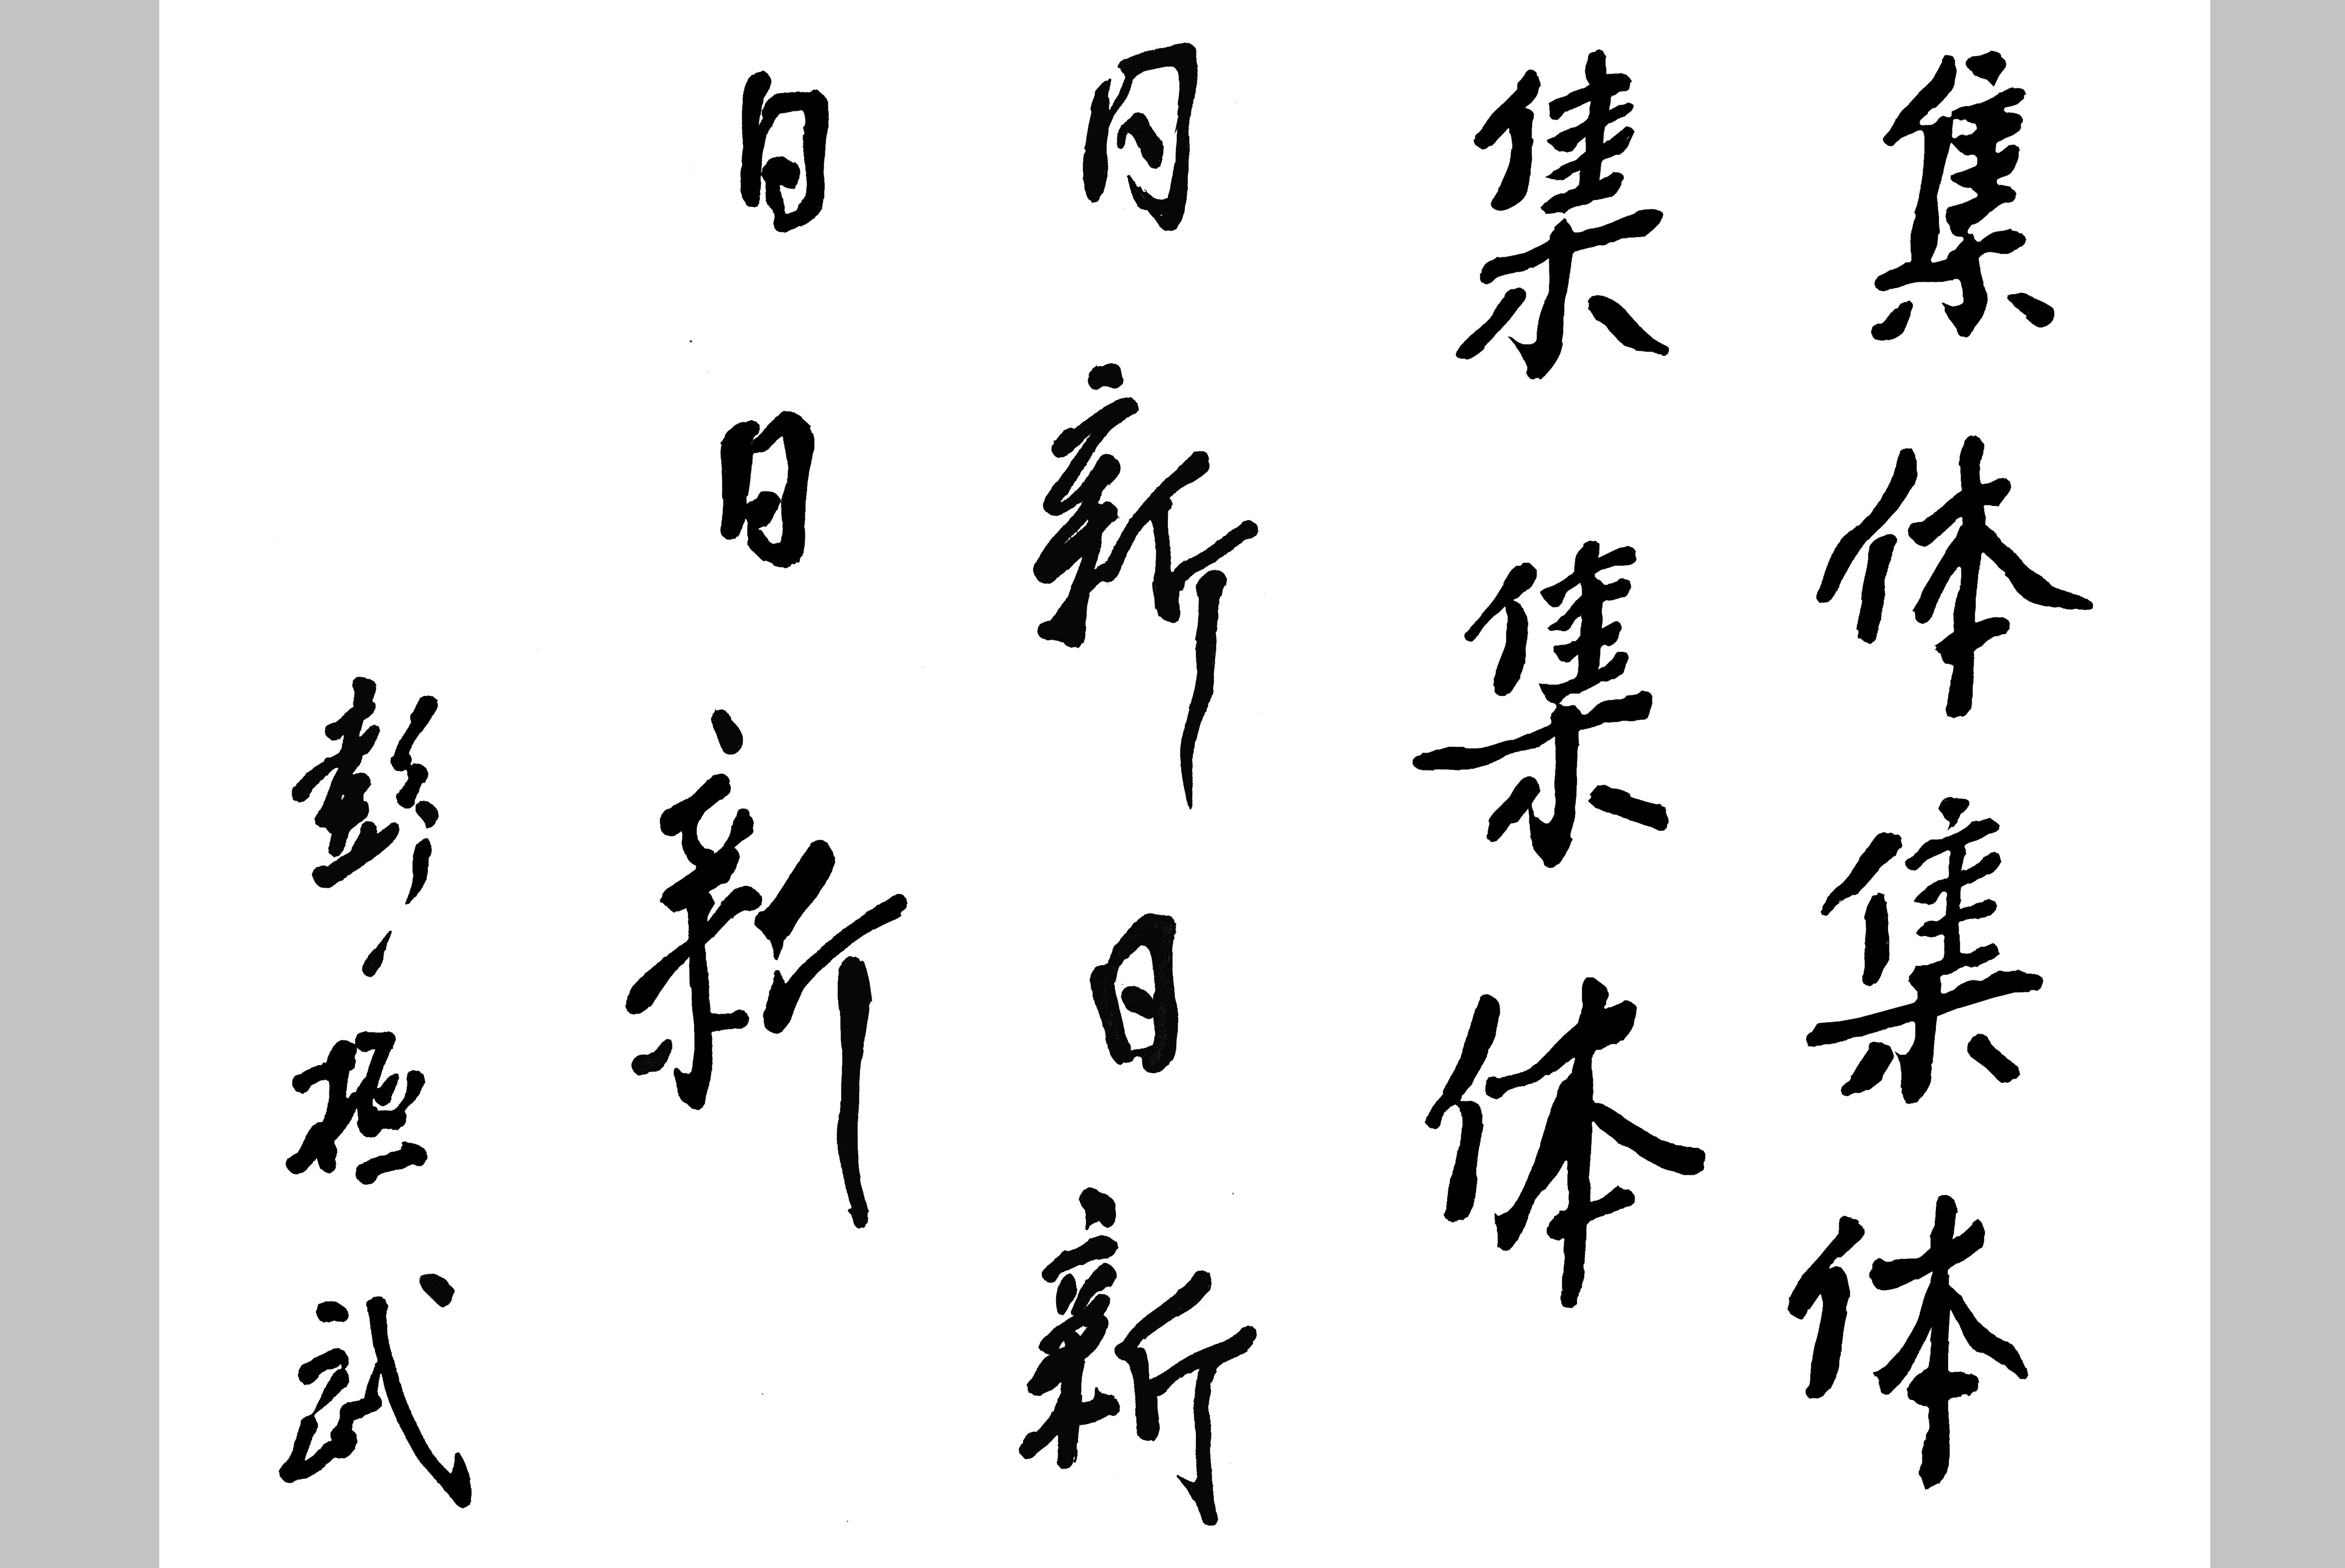 集体集体
集集体
日新日新
日日新
彭
武